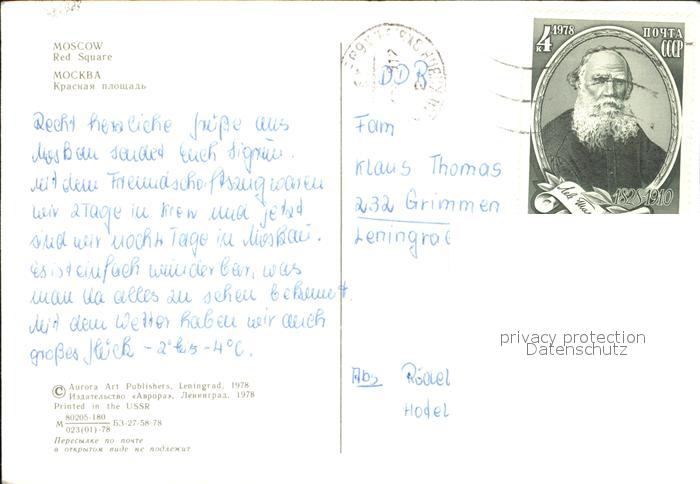 MOSCOW
Red Square
МОСКВА
Красная площадь
Recht herzliche Grüße aus
Moskau sendet Euch Sigrun.
Mit dem Freundschaftszug waren
wir 2 Tage in Kiew und jetzt
sind wir noch 4 Tage in Moskau.
Es ist einfach wunderbar, was
man da alles zu sehen bekommt.
Mit dem Wetter haben wir auch
großes Glück -2° bis -4°C.
© Aurora Art Publishers, Leningrad, 1978
Издательство «Аврора», Ленинград, 1978
Printed in the USSR
М 80205-180
023(01)-78 БЗ-27-58-78
Пересылке по почте
в открытом виде не подлежит
DDR
Fam
Klaus Thomas
232 Grimmen
Leningrad
Abs
4 К 1978 ПОЧТА СССР
1828-1910
privacy protection
Datenschutz